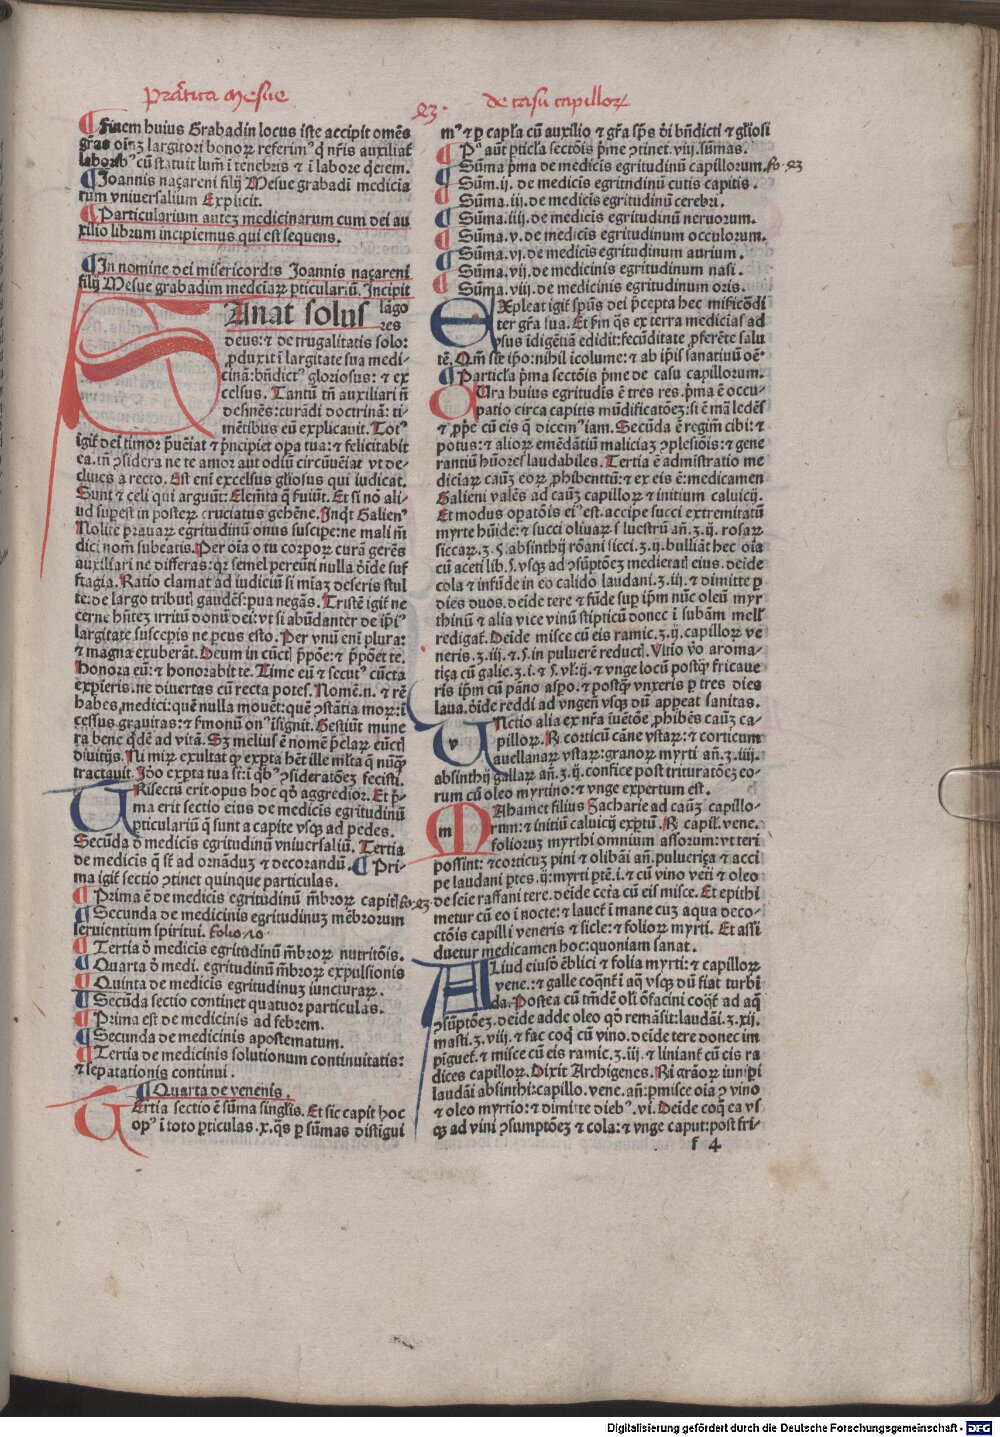 Pra͡tica Mesue
.93.
de casu capilloꝝ
¶ Finem huius Grabadin locus iste accipit omēs
gr̄as oīnꝫ largitori honoꝝ referim⁹ q̄ nr̄is auxiliaƭ
laborib⁹ cū statuit lum̄ ī tenebris ⁊ ī labore q̄rem.
¶ Joannis naçareni filij Mesue grabadi medicia
rum vniuersalium Explicit.
¶ Particularium auteꝫ medicinarum cum dei au
xilio librum incipiemus qui est sequens.
¶ In nomine dei misericordis Joannis naçareni
filij Mesue grabadim mediciaꝝ ꝑticulariū. Incipit
SAnat solus lāgo
res
deus: ⁊ de frugalitatis solo:
ꝓduxit ī largitate sua medi-
cinā: bn̄dict⁹ gloriosus: ⁊ ex
celsus. Tantū tn̄ auxiliari n̄
desinēs: curādi doctrinā: ti-
mētibus eū explicauit. Tot⁹
igiƭ dei timor p̄uēiat ⁊ p̄ncipiet oꝑa tua: ⁊ felicitabit
ea. tn̄ ꝯsidera ne te amor aut odiū circūuēiat vt de-
clues a recto. Est eni excelsus gl̄iosus qui iudicat.
Sunt ⁊ celi qui arguūt: Elem̄ta q̄ fuiūt. Et si nō ali-
ud suꝑest in posteꝝ cruciatus gehēne. Inqt̄ Galien⁹
Nolite prauaꝝ egritudinū onus suscipe: ne mali m̄
dici nom̄ subeatis. Per oīa o tu corpoꝝ curā gerēs
auxiliari ne differas: qꝛ semel pereūti nulla ōide suf
fragia. Ratio clamat ad iudiciū si mīaꝫ deseris stul
te: de largo tributꝭ gaudēs: pua negās. Tristē igiƭ ne
cerne hn̄tez irritū donū dei: vt si abūdanter de ip̄i⁹
largitate susceꝑis ne ꝑcus esto. Per vnū eni plura:
⁊ magna exuberāt. Deum in cūctꝭ p̄pōe: ⁊ p̄pōet te.
Honora eū: ⁊ honorabit te. Time eū ⁊ secut⁹ cūcta
exꝑieris. ne diuertas cū recta potes. Nomē. n. ⁊ rē
habes, medici: quē nulla mouēt: quē ꝯstātia moꝝ: ī
cessus grauitas: ⁊ s̄monū on⁹ īsignit. Gestiūt mune
ra bene q̄dē ad vitā. Sꝫ melius ē nomē p̄claꝝ cūctꝭ
diuitijs. Ni mirꝝ exultat qꝫ exꝑta hēt ille ml̄ta q̄ nūqꝫ
tractauit. Iō̄o exꝑta tua sī: ī qb⁹ ꝯsideratōez fecisti.
TRisectū erit opus hoc qō aggredior. Et p̄-
ma erit sectio eius de medicis egritudinū
ꝑticulariū q̄ sunt a capite vsqꝫ ad pedes.
Secūda ō medicis egritudinū vniuersaliū. Tertia
de medicis q̄ sē ad ornāduꝫ ⁊ decorandū. ¶ Pri-
ma igiƭ sectio ꝯtinet quinque particulas.
¶ Prima ē de medicis egritudinū m̄broꝝ capitꝭ fo. 93.
¶ Secunda de medicinis egritudinuꝫ mēbrorum
seruientium spiritui. folio .10.
¶ Tertia ō medicis egritudinū m̄broꝝ nutritōis.
¶ Quarta ō medi. egritudinū m̄broꝝ expulsionis
¶ Quinta de medicis egritudinuꝫ iuncturaꝝ.
¶ Secūda sectio continet quatuor particulas.
¶ Prima est de medicinis ad febrem.
¶ Secunda de medicinis apostematum.
¶ Tertia de medicinis solutionum continuitatis:
⁊ sepatationis continui.
¶ Quarta de venenis.
TErtia sectio ē sūma singl̄is. Et sic capit hoc
op⁹ ī toto ꝑticulas. x. q̄s ꝑ sūmas distigui
m⁹ ⁊ ꝑ capl̄a cū auxilio ⁊ gr̄a sp̄s ōi bn̄dicti ⁊ gl̄iosi
¶ Pª aūt ꝑticl̄a sectōis p̄me ꝯtinet. viij. sūmas.
¶ Sūma p̄ma de medicis egritudinū capillorum. fo. 93
¶ Sūm. ij. de medicis egritndinū cutis capitis.
¶ Sūma. iij. de medicis egritudinū cerebri.
¶ Sūma. iiij. de medicis egritudinū neruorum.
¶ Sūma. v. de medicis egritudinum occulorum.
¶ Sūma. vj. de medicis egritudinum aurium.
¶ Sūma. vij. de medicinis egritudinum nasi.
¶ Sūma. viij. de medicinis egritudinum oris.
EXpleat igiƭ sp̄us dei p̄cepta hec misicōdi
ter gr̄a sua. Et s̄m q̄s ex terra medicīas ad
vsus īdigētiā edidit: fecūditate ꝓferēte salu
tē. Om̄ sīƭ ip̄o: nihil icolume: ⁊ ab ip̄is sanatiuū oē.
¶ Particl̄a p̄ma sectōis p̄me de casu capillorum.
CUra huius egritudīs ē tres res. p̄ma ē occu-
patio circa capitis mūdificatōez: si ē mā ledēs
⁊ ꝓpe cū eis q̄ dicem⁹ iam. Secūda ē regim̄ cibi: ⁊
potus: ⁊ alioꝝ emēdātiū maliciaz ꝯplesiōis: ⁊ gene
rantiū hūores laudabiles. Tertia ē admīstratio me
dicīaꝝ cauȝ eoꝝ ꝓhibentiū: ⁊ ex eis ē: medicamen
Galieni valēs ad cauȝ capilloꝝ ⁊ initium caluicij.
Et modus oꝑatōis ei⁹ est. accipe succi extremitatū
myrte hūide: ⁊ succi oliuaꝝ sluestriū añ. ʒ. ij. rosaꝝ
siccaꝝ. ʒ. ſ. absinthij rōani sicci. ʒ. ij. bulliāt hec oīa
cū aceti lib. ſ. vsqꝫ ad ꝯsūptōez medietatꝭ eius. deide
cola ⁊ infūde in eo calido laudani. ʒ. iij. ⁊ dimitte ꝑ
dies duos. deide tere ⁊ fūde suꝑ ip̄m nūc oleū myr
thinū ⁊ alia vice vinū stipticū donec ī subām mellꝭ
redigaƭ. Deide misce cū eis ramic. ʒ. ij. capilloꝝ ve
neris. ʒ. iij. ⁊ ſ. in puluerē reductꝭ. Vltio v̄o aroma-
tiça cū galie. ʒ. i. ⁊ ſ. vl̄. ij. ⁊ vnge locū postqꝫ fricaue
ris ip̄m cū pāno aspo. ⁊ postqꝫ vnxeris ꝑ tres dies
laua. ōide reddi ad vngen̄ vsqꝫ dū appeat sanitas.
UNctio alia ex nr̄a iuētōe ꝓhibēs cauȝ ca-
pilloꝝ. ℞ corticū cāne vstaꝝ: ⁊ corticum
auellanaꝝ vstaꝝ: granoꝝ myrti añ. ʒ. iiij.
absinthij gallaꝝ añ. ʒ. ij. confice post trituratōez eo-
rum cū oleo myrtino: ⁊ vnge expertum est.
MAhamet filius Zacharie ad cauȝ capillo-
rnm: ⁊ initiū caluicij exꝑtū. ℞ capil. vene.
foliorum myrthi omnium assorum: vt teri
possint: ⁊ corticuȝ pini ⁊ olibāi añ. pulueriça ⁊ acci
pe laudani ꝑtes. ij: myrti ꝑtē. i. ⁊ cū vino veƭi ⁊ oleo
de seie raffani tere. deide ceƭa cū eis misce. Et epithi
metur cū eo ī nocte: ⁊ laueƭ ī mane cuꝫ aqua deco-
ctōis capilli veneris ⁊ sicle: ⁊ folioꝝ myrti. Et assi
duetur medicamen hoc: quoniam sanat.
ALiud eiusō ēblici ⁊ folia myrti: ⁊ capilloꝝ
vene.: ⁊ galle coqn̄ƭ ī aq̄ vsqꝫ dū fiat turbi
da. Postea cū tm̄dē oli ōfacini coqƭ ad aq̄
ꝯsūptōez. deide adde oleo qō remāsit: laudāi. ʒ. xij.
masti. ʒ. viij. ⁊ fac coq̄ cū vino. deide tere donec im
pīgueƭ. ⁊ misce cū eis ramic. ʒ. iij. ⁊ liniant̄ cū eis ra
dices capilloꝝ. Dixit Archigenes. ℞ grāoꝝ iunīꝑi
laudāi absinthi: capillo. vene. añ. ꝑmisce oīa ꝯ vino
⁊ oleo myrtio: ⁊ dimitte dieb⁹. vi. Deide coq̄ ea vs
qꝫ ad vini ꝯsumptōez ⁊ cola: ⁊ vnge caput: post fri-
f 4
Digitalisierung gefördert durch die Deutsche Forschungsgemeinschaft - DFG